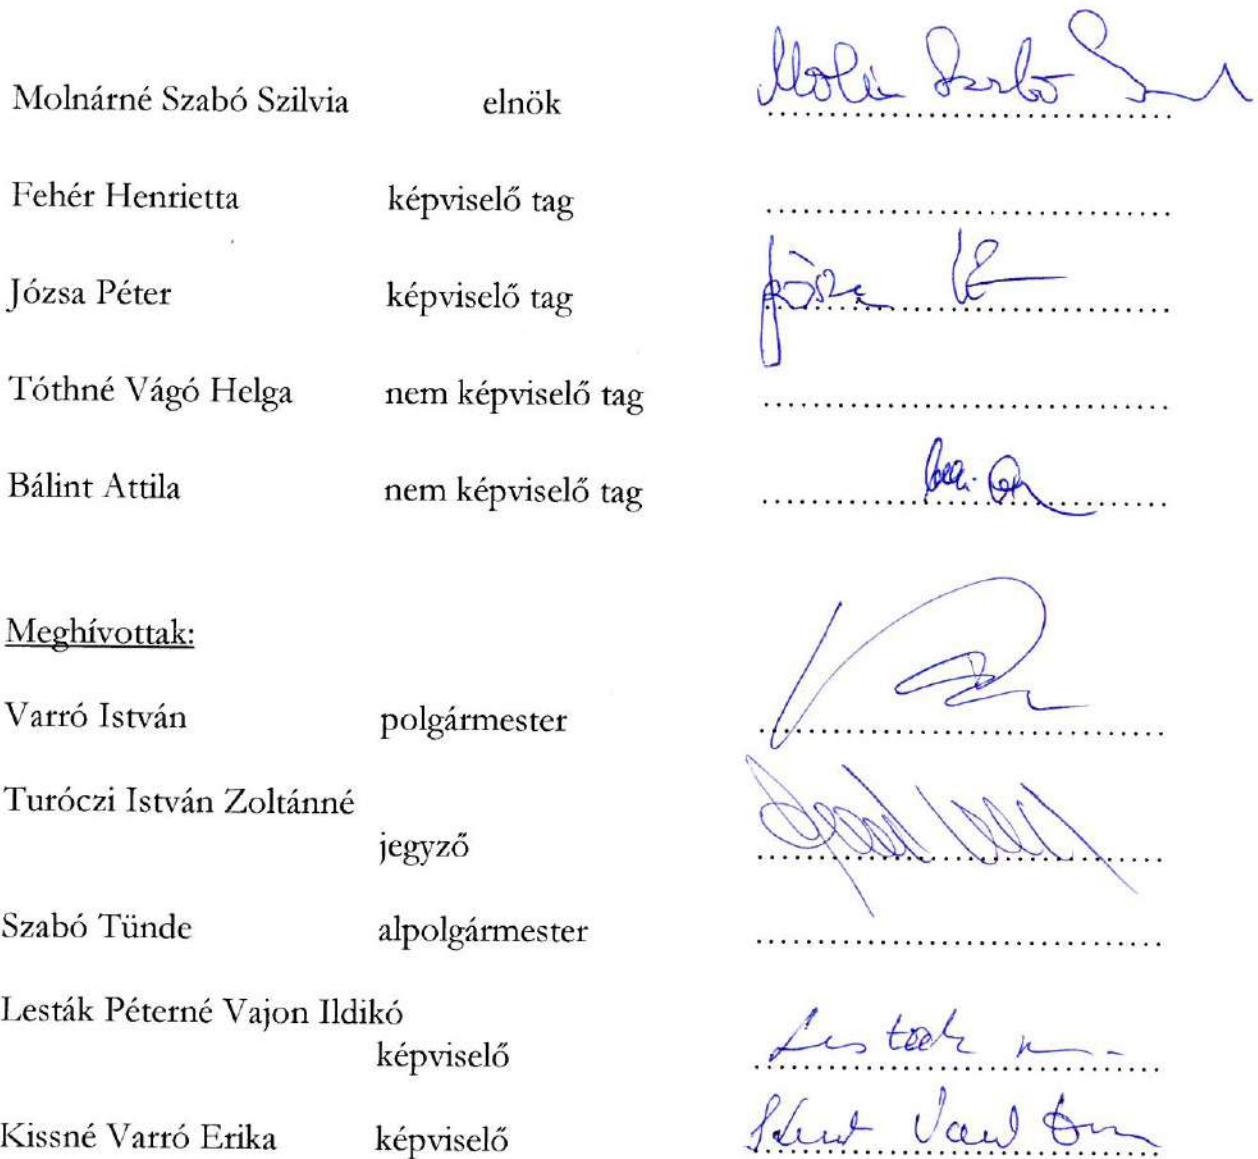 Molnárné Szabó Szilvia elnök
Fehér Henrietta képviselő tag
Józsa Péter képviselő tag
Tóthné Vágó Helga nem képviselő tag
Bálint Attila nem képviselő tag
Meghívottak:
Varró István polgármester
Turóczi István Zoltánné
jegyző
Szabó Tünde alpolgármester
Lesták Péterné Vajon Ildikó
képviselő
Kissné Varró Erika képviselő